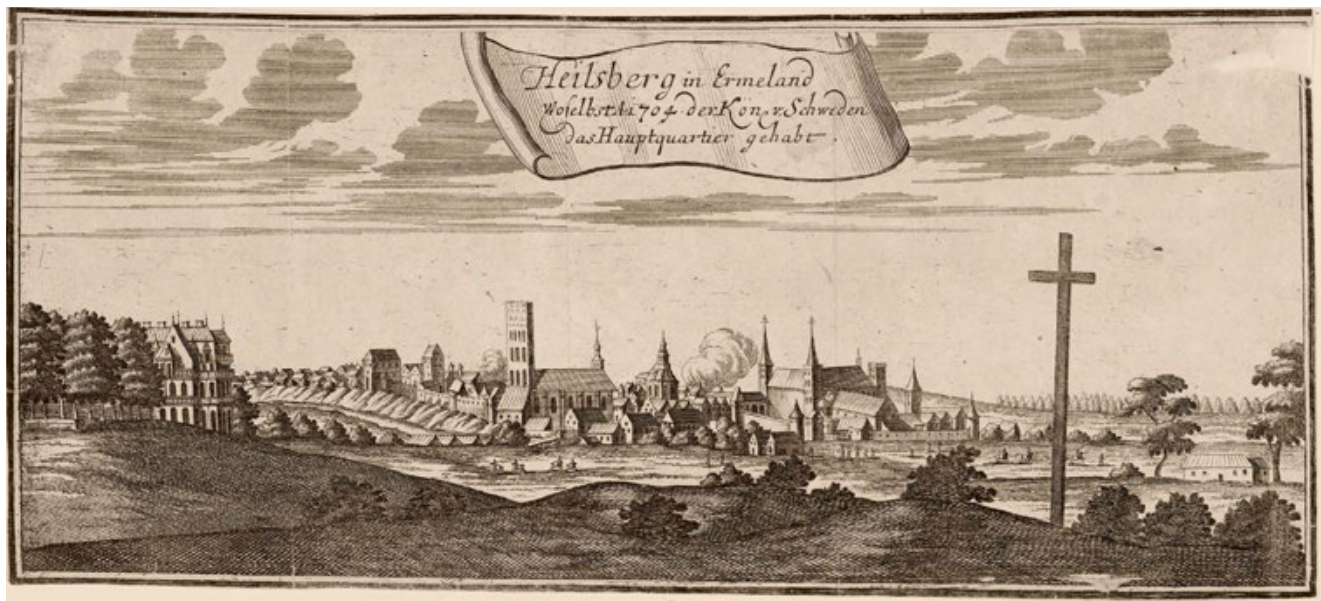 Heilsberg in Ermeland
Woselbst A. 1704. der Kön. v. Schweden
das Hauptquartier gehabt.